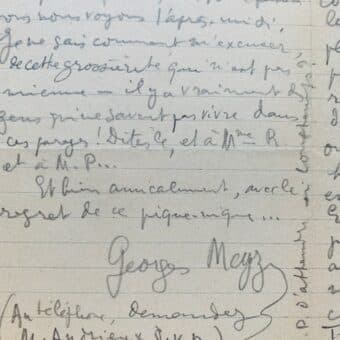 nous nous voyons l'après-midi,
Je ne sais comment m'excuser,
de cette grossièreté qui n'est pas
mienne — il y a vraiment d
gens qui ne savent pas vivre dans
ces parages ! Dites-le, et à Mme R
et à M. P...
Et bien amicalement, avec le
regret de ce pique-nique ...
Georges Meyz
(Au téléphone, demandez
M. Andrieux
d'attendre